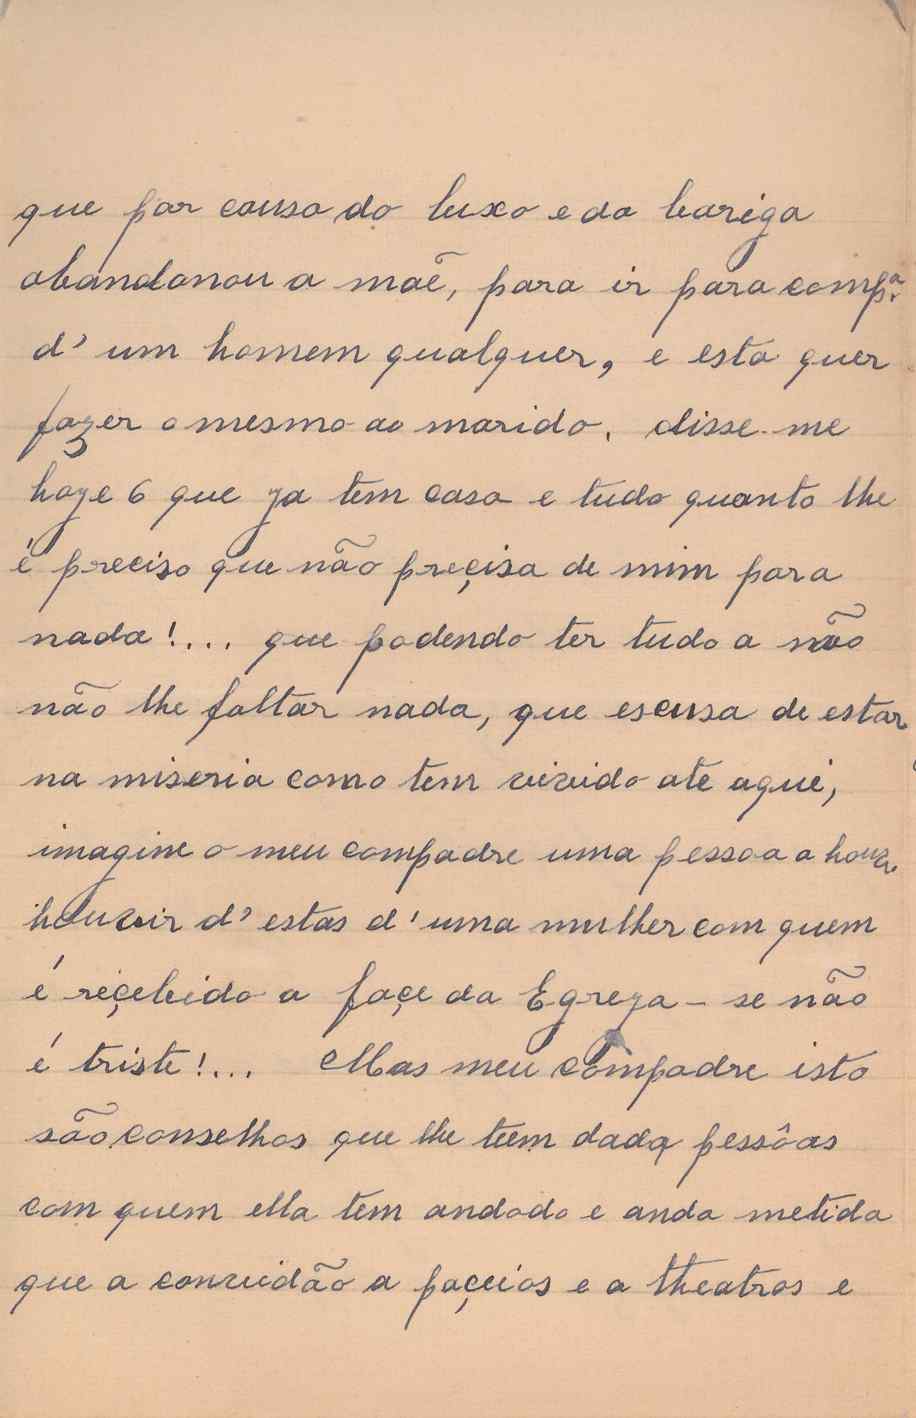 que por causa do luxo e da bariga
abandonou a maẽ, para ir para comp.ª
d' um homem qualquer, e esta quer
fazer o mesmo ao marido. disse-me
hoje 6 que ja tem casa e tudo quanto lhe
é preciso que não preçisa de mim para
nada!... que podendo ter tudo a não
não lhe faltar nada, que escusa de estar
na miseria como tem vivido ate aqui,
imagine o meu compadre uma pessoa a houv
houvir d' estas d' uma mulher com quem
é reçebido a façe da Egreja - se não
é triste!... Mas meu compadre isto
são conselhos que lhe teem dado pessôas
com quem ella tem andado e anda metida
que a convidão a paçeios e a theatros e